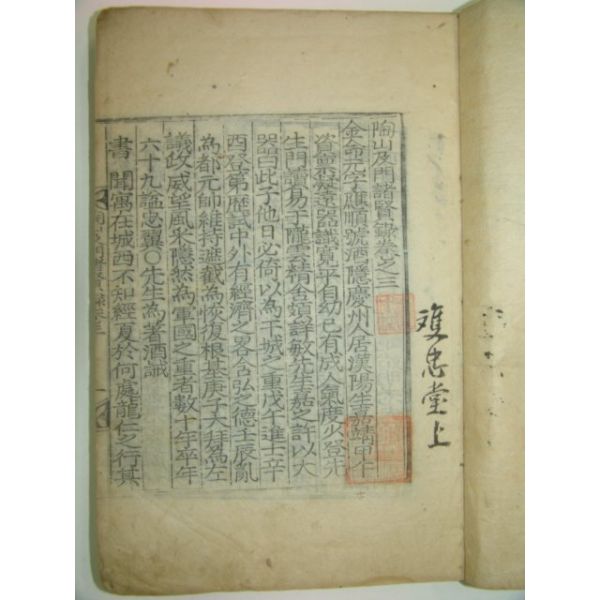 陶山及門諸賢錄卷之三
金命元字應順號酒隱慶州人居漢陽生嘉靖甲午
資稟凝遠器識寬平自幼已有成人氣度少登先
生門讀易于隴雲精舍頗詳敏先生嘉之許以大
器曰此子他日必倚以為干城之重戊午進士辛
酉登第歷試中外有經濟之畧含弘之德壬辰亂
為都元帥維持遮截為恢復根基庚子大拜為左
議政威望風采隱然為軍國之重者數十年卒年
六十九謚忠翼○先生為著酒誡
書 聞寓在城西不知經夏於何處龍仁之行其
忠堂上